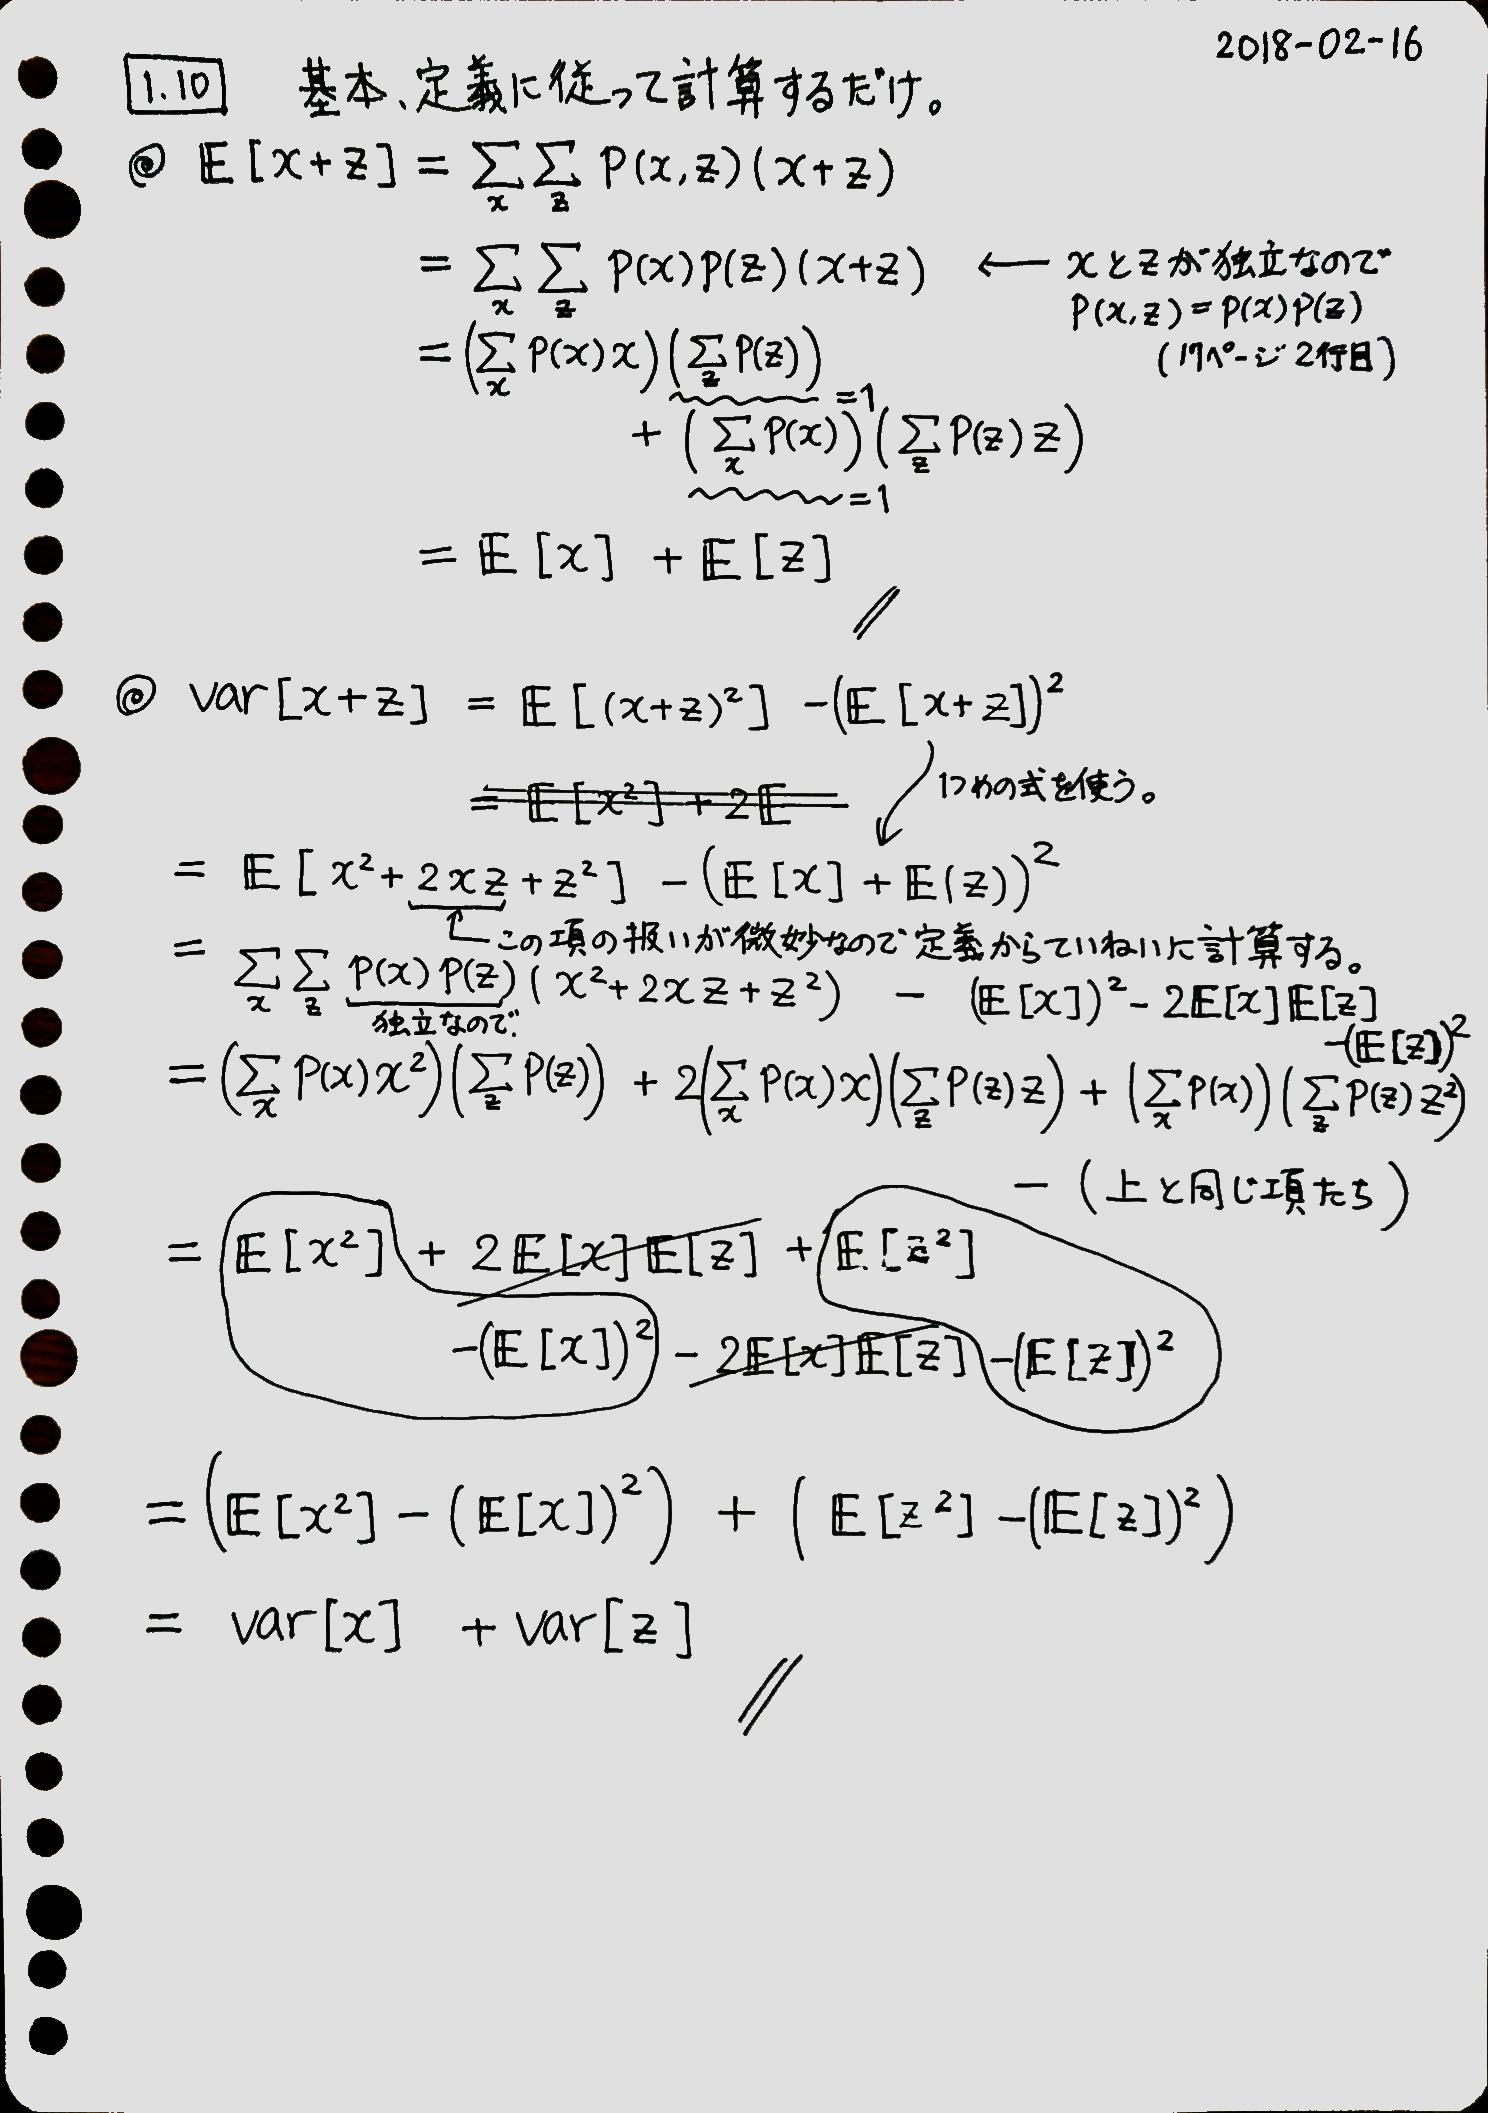 2018-02-16
1.10 基本、定義に従って計算するだけ。
◎ 𝔼[x+z] = Σ_x Σ_z P(x,z)(x+z)
= Σ_x Σ_z P(x)P(z)(x+z) ← xとzが独立なので
P(x,z)=P(x)P(z)
(17ページ2行目)
= (Σ_x P(x)x)(Σ_z P(z))
=1
+ (Σ_x P(x))(Σ_z P(z)z)
=1
= 𝔼[x] + 𝔼[z]
//
◎ var[x+z] = 𝔼[(x+z)²] -(𝔼[x+z])²
= 𝔼[x²] + 2𝔼
1つめの式を使う。
= 𝔼[x²+2xz+z²] - (𝔼[x]+𝔼(z))²
この項の扱いが微妙なので定義からていねいに計算する。
= Σ_x Σ_z P(x)P(z)(x²+2xz+z²) - (𝔼[x])²-2𝔼[x]𝔼[z]
独立なので
-(𝔼[z])²
= (Σ_x P(x)x²)(Σ_z P(z)) + 2(Σ_x P(x)x)(Σ_z P(z)z) + (Σ_x P(x))(Σ_z P(z)z²)
- (上と同じ項たち)
= 𝔼[x²] + 2𝔼[x]𝔼[z] + 𝔼[z²]
-(𝔼[x])² - 2𝔼[x]𝔼[z] -(𝔼[z])²
= (𝔼[x²] - (𝔼[x])²) + (𝔼[z²] -(𝔼[z])²)
= var[x] + var[z]
//